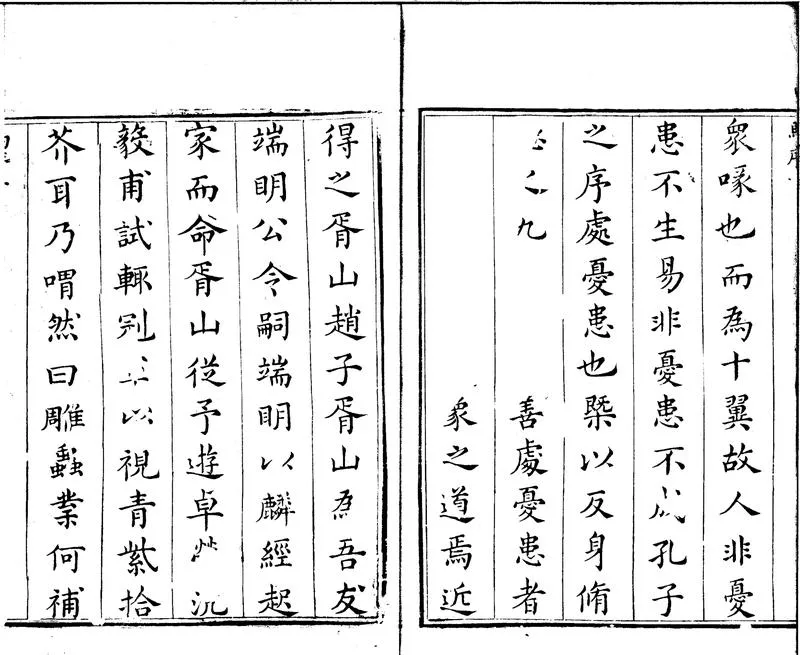 衆喙也而為十翼故人非憂
患不生易非憂患不成孔子
之序處憂患也槩以反身脩
九 善處憂患者
象之道焉近
得之胥山趙子胥山為吾友
端明公令嗣端明以麟經起
家而命胥山從予遊卓沉
毅甫試輒别以視青紫拾
芥耳乃喟然曰雕蟲業何補